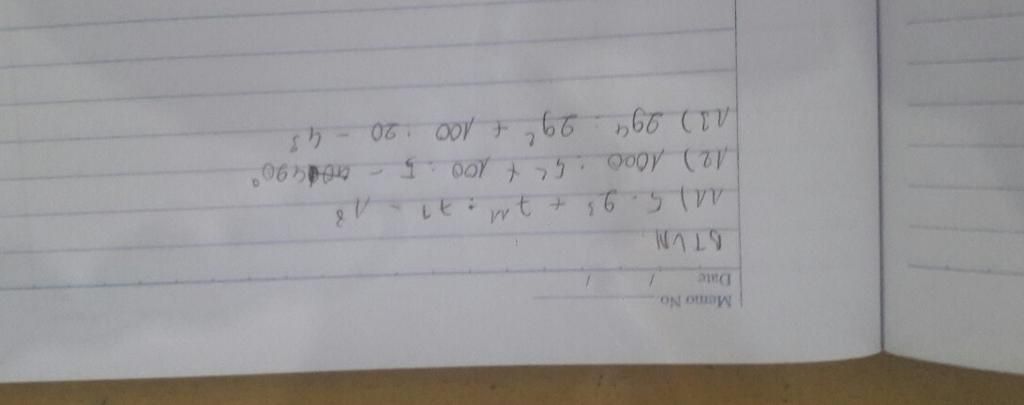 Memo No
Date / /
BTVN
11) 5 . 9³ + 7¹¹ : 7⁹ - 1⁸
12) 1000 : 5² + 100 : 5 - 490⁰
13) 29⁴ : 29² + 100 : 20 - 4³